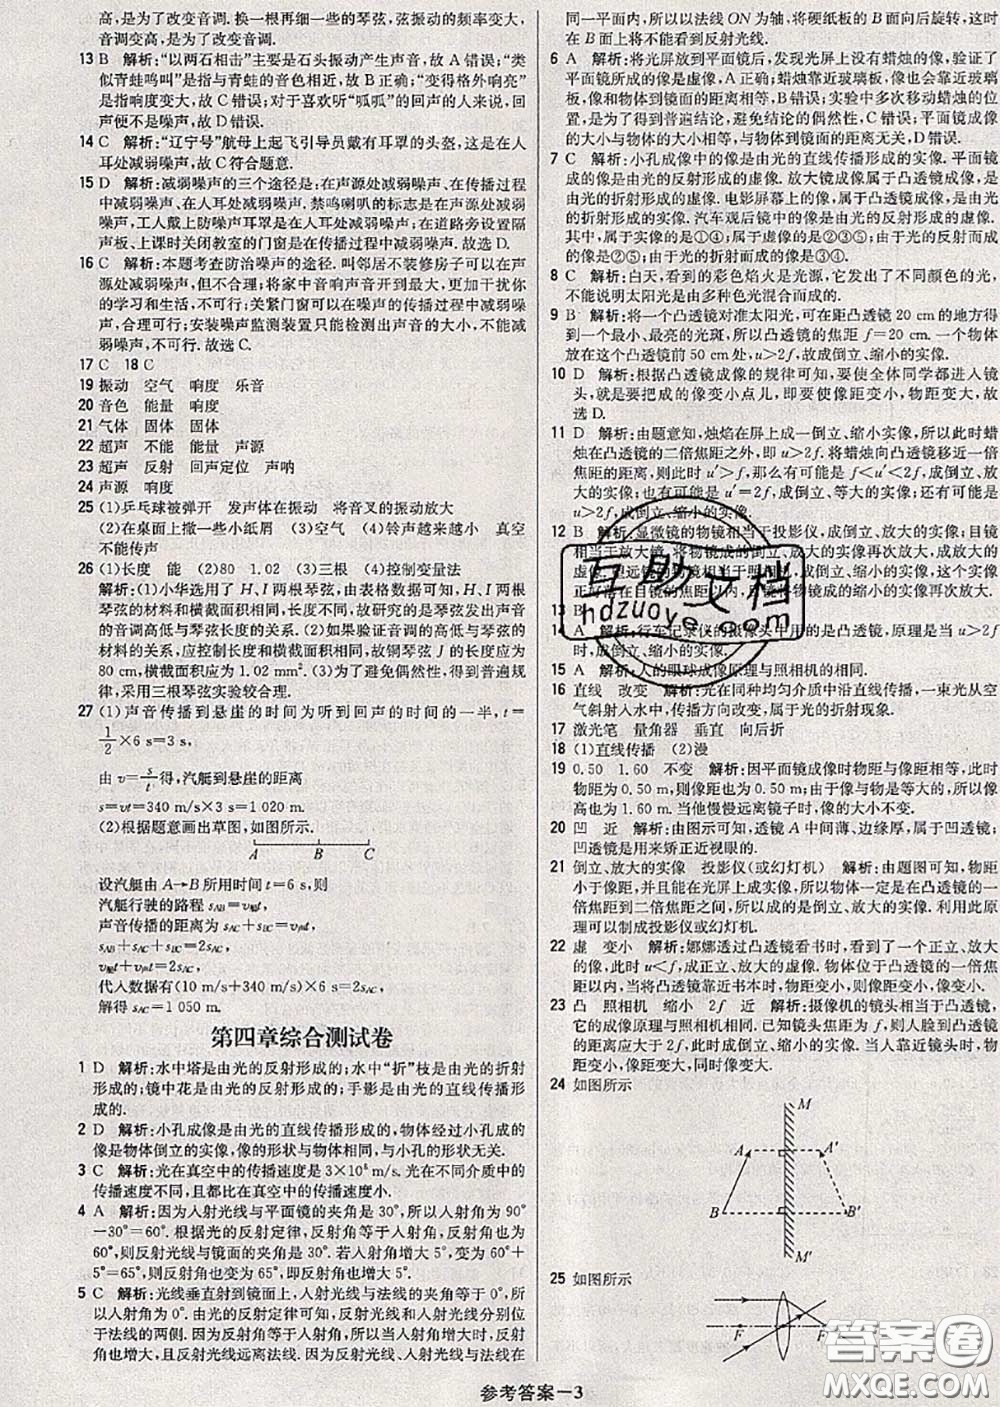 高,是为了改变音调. 换一根粗一些的琴弦,弦振动的频率变大,
音调变高,是为了改变音调.
13 B 解析:“以两石相击”主要是石头振动产生声音,故 A 错误;“类
似青蛙鸣叫”是指与青蛙的音色相近,故 B 正确;“变得格外响亮”
是指响度变大,故 C 错误;对于喜欢听“呱呱”的回声的人来说,回
声便不是噪声,故 D 错误.
14 C 解析:“辽宁号”航母上起飞引导员戴有耳罩的头盔,这是在人
耳处减弱噪声,故 C 符合题意.
15 D 解析:减弱噪声的三个途径是:在声源处减弱、在传播过程
中减弱、在人耳处减弱. 禁鸣喇叭的标志是在声源处减弱
噪声,工人戴上防噪声耳罩是在人耳处减弱噪声;在道路旁设置隔
声板、上课时关闭教室的门窗是在传播过程中减弱噪声.故选 D.
16 C 解析:本题考查防治噪声的途径. 叫邻居不装修房子可以在声
源处减弱噪声,但不合理;将家中音响声音开到最大,更干扰了你
的学习和生活,不可行;关紧门窗可以在噪声的传播过程中减弱噪
声,合理可行;安装噪声监测装置只能检测出声音的大小,不能减
弱噪声,不可行. 故选 C.
17 C 18 C
19 振动 空气 响度 乐音
20 音色 能量 响度
21 气体 固体 固体
22 超声 不能 能量 声源
23 超声 反射 回声定位 声呐
24 声源 响度
25 (1)乒乓球被弹开 发声体在振动 将音叉的振动放大
(2)在桌面上撒一些小纸屑 (3)空气 (4)铃声越来越小 真空
不能传声
26 (1)长度 能 (2)80 1.02 (3)三根 (4)控制变量法
解析:(1)小华选用了 H、I 两根琴弦,由表格数据可知,H、I 两
根琴弦的材料和横截面积相同,长度不同,故研究的是琴弦发出声音
的音调高低与琴弦长度的关系. (2)如果验证音调的高低与琴弦
的材料的关系,应控制长度和横截面积相同,故铜琴弦 J 的长度为
80 cm,横截面积应为 1.02 mm². (3)为了避免偶然性,得到普遍规
律,采用三根琴弦实验较合理.
27 (1)声音传播到悬崖的时间为听到回声的时间的一半,t=
1/2×6 s=3 s,
由 v=s/t得,汽艇到悬崖的距离
s=vt=340 m/s×3 s=1 020 m.
(2)根据题意画出草图,如图所示.
A B C
设汽艇由 A→B 所用时间 t=6 s,则
汽艇行驶的路程 sAB=v艇t,
声音传播的距离为 sAC+sBC=v声t,
sAB+sAC+sBC=2sAC,
v艇t+v声t=2sAC,
代入数据有(10 m/s+340 m/s)×6 s=2sAC,
解得:sAC=1 050 m.
第四章综合测试卷
1 D 解析:水中塔是由光的反射形成的;水中“折”枝是由光的折射
形成的;镜中花是由光的反射形成的;手影是由光的直线传播形
成的.
2 D 解析:小孔成像是由光的直线传播形成的,物体经过小孔成的
像是物体倒立的实像,像的形状与物体相同,与小孔的形状无关.
3 C 解析:光在真空中的传播速度是 3×10⁸ m/s. 光在不同介质中的
传播速度不同,且都比在真空中的传播速度小.
4 A 解析:因为入射光线与平面镜的夹角是 30°,所以入射角为 90°
-30°=60°. 根据光的反射定律,反射角等于入射角,反射角也为
60°,则反射光线与镜面的夹角是 30°. 若入射角增大 5°,变为 60°+
5°=65°,则反射角也变为 65°,即反射角也增大 5°.
5 C 解析:光线垂直射到镜面上,入射光线与法线的夹角是 0°,所
以入射角为 0°. 由光的反射定律可知,反射光线和入射光线分别位
于法线的两侧. 因为反射角等于入射角,所以当入射角增大时,反
射角增大,反射光线远离法线. 因为反射光线、入射光线与法线在
同一平面内,所以以法线 ON 为轴,将硬纸板的 B 面向后旋转,这时
在 B 面上将不能看到反射光线.
6 A 解析:将光屏放到平面镜后,光屏上没有蜡烛的像,验证了平
面镜所成的像是虚像,A 正确;蜡烛靠近玻璃板,像也会靠近玻璃
板,像和物体到玻璃板的距离相等,B 错误;实验中多次移动蜡烛的位
置,是为了得到普遍结论,避免结论的偶然性,C 错误;平面镜成像
的大小与物体的大小有关,与物体到镜面的距离无关,D 错误.
7 C 解析:小孔成像中的像是由光的直线传播形成的实像. 平面镜
成的像是由光的反射形成的虚像. 放大镜成像属于凸透镜成像,是
由光的折射形成的虚像. 电影屏幕上的像,属于凸透镜成像,是由光
的折射形成的实像. 汽车观后镜中的像是由光的反射形成的虚像.
其中,属于实像的是①④;属于虚像的是②③⑤;由于光的反射而成
的是②⑤;由于光的折射而成的是③④.
8 C 解析:白天,看到的彩色焰火是光源,它们发出了不同颜色的光,
不能说明太阳光是由多种色光混合而成的.
9 B 解析:将一个凸透镜对准太阳光,可在距凸透镜 20 cm 的地方得到一个
最小、最亮的光斑,所以凸透镜的焦距 f=20 cm. 一个物体
放在这个凸透镜前 50 cm 处,u>2f,故成倒立、缩小的实像.
10 D 解析:根据凸透镜成像的规律可知,要使全体同学都进入镜
头,就是要把成的像变小点儿,即要使像距变小,物距变大,故
选 D.
11 D 解析:由题意知,烛焰在屏上成一倒立、缩小实像,所以此时蜡
烛在凸透镜的二倍焦距之外,即 u>2f. 将蜡烛向凸透镜移近一倍
焦距的距离,则此时 u′>f,那么有可能 f<u′<2f,成倒立、放大
的实像;也有可能 u′=2f,成倒立、等大的实像;还有可能 u′>2f,
成倒立、缩小的实像.
12 B 解析:显微镜的物镜相当于投影仪,成倒立、放大的实像;目镜
相当于放大镜,将物镜成的倒立、放大的实像再次放大,成放大的
虚像.
13 B
14 A 解析:行车记录仪的摄像头中用的是凸透镜,原理是当 u>2f
时,成倒立、缩小的实像.
15 A 解析:人的眼球成像原理与照相机的相同.
16 直线 改变 解析:光在同种均匀介质中沿直线传播,一束光从空
气斜射入水中,传播方向改变,属于光的折射现象.
17 激光笔 量角器 垂直 向后折
18 (1)直线传播 (2)漫
19 0.50 1.60 不变 解析:因平面镜成像时物距与像距相等,
物距为 0.50 m,则像距也为 0.50 m;由于像与物体等大,所以像
高也为 1.60 m. 当他慢慢远离镜子时,像的大小不变.
20 凹 近 解析:由图示可知,透镜 A 中间薄、边缘厚,属于凹透镜;
凹透镜是用来矫正近视眼的.
21 倒立、放大的实像 投影仪(或幻灯机) 解析:由题图可知,物距
小于像距,并且能在光屏上成实像,所以物体一定是在凸透镜的一
倍焦距到二倍焦距之间,成的是倒立、放大的实像. 利用此原理
可以制成投影仪或幻灯机.
22 虚 变小 解析:娜娜透过凸透镜看书时,看到了一个正立、放大
的像,此时 u<f,成正立、放大的虚像. 物体位于凸透镜的一倍焦
距以内,当将凸透镜靠近书本时,物距变小,则像距变小,像变小.
23 凸 照相机 缩小 2f 近 解析:摄像机的镜头相当于凸透镜,
它的成像原理与照相机相同. 已知摄像头焦距为 f,则人脸到凸透镜
的距离应大于 2f,此时成倒立、缩小的实像. 当人靠近镜头时,物
距变小,像距变大,同时像变大.
24 如图所示
M
A A′
B B′
M′
25 如图所示
F F
参考答案—3
互助文档
hdzuoye.com
答案圈
MXQE.COM